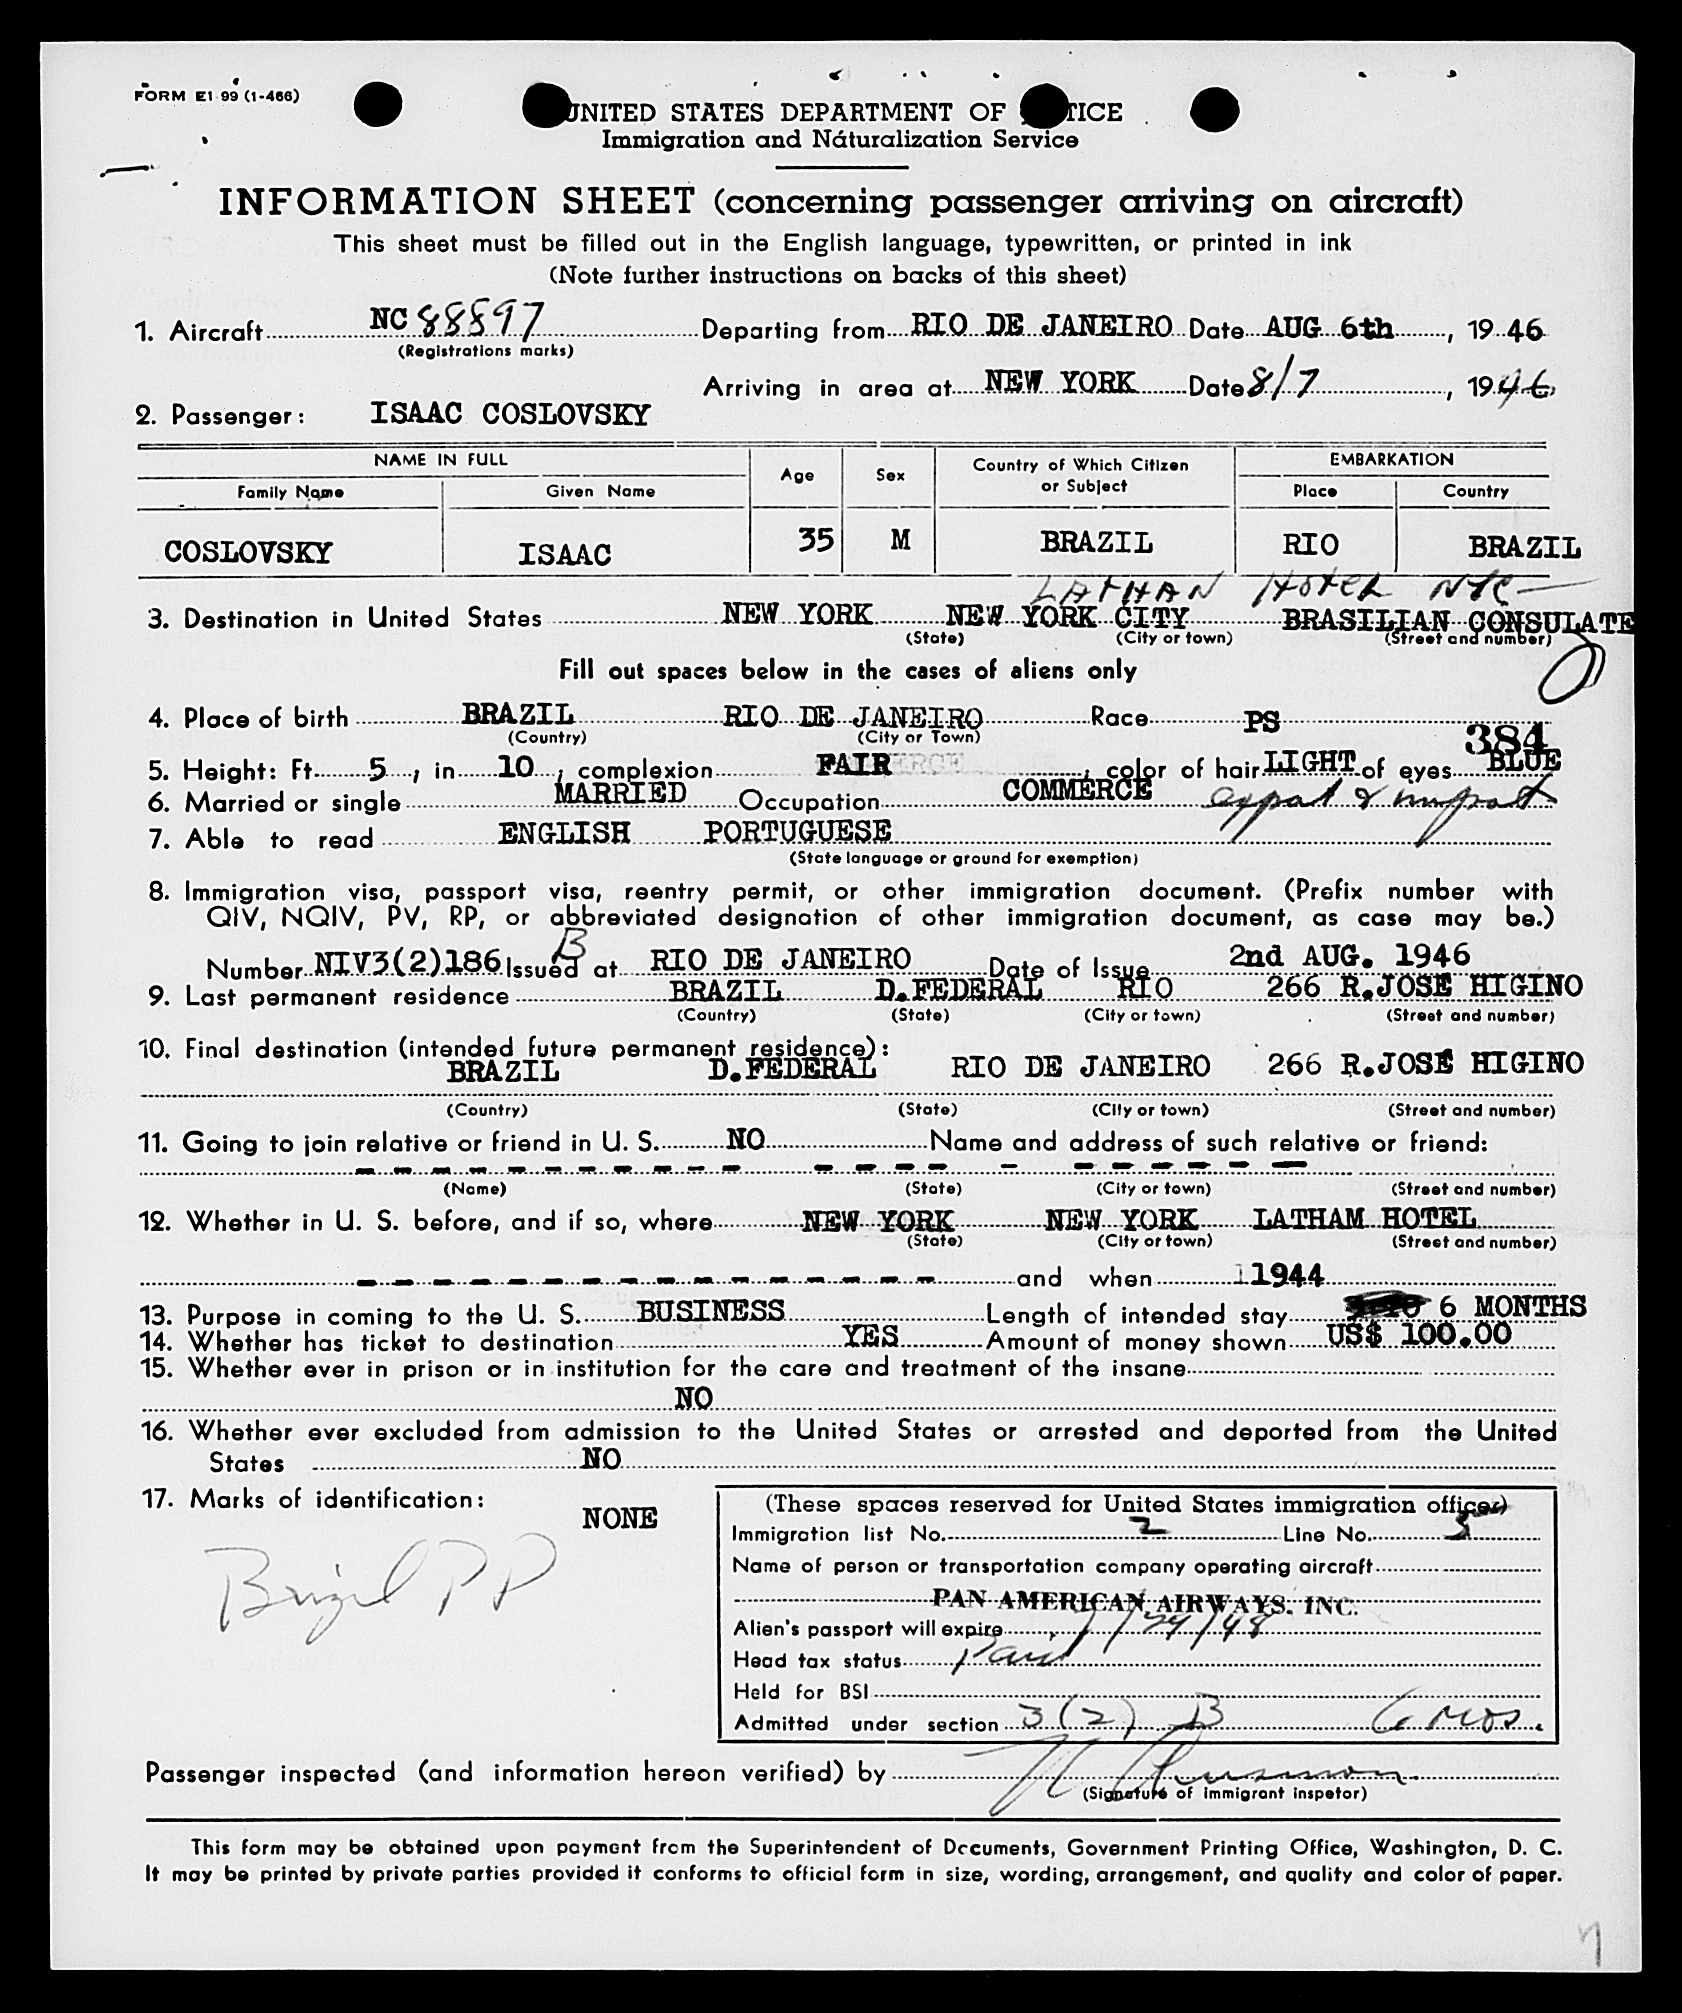 FORM E1 99 (1-466)
UNITED STATES DEPARTMENT OF TICE
Immigration and Naturalization Service
INFORMATION SHEET (concerning passenger arriving on aircraft)
This sheet must be filled out in the English language, typewritten, or printed in ink
(Note further instructions on backs of this sheet)
1. Aircraft NC 88897 Departing from RIO DE JANEIRO Date AUG 6th, 1946
(Registrations marks)
Arriving in area at NEW YORK Date 8/7, 1946
2. Passenger: ISAAC COSLOVSKY
NAME IN FULL Age Sex Country of Which Citizen or Subject EMBARKATION
Family Name Given Name Place Country
COSLOVSKY ISAAC 35 M BRAZIL RIO BRAZIL
LATHAN HOTEL NYC
3. Destination in United States NEW YORK NEW YORK CITY BRASILIAN CONSULATE
(State) (City or town) (Street and number)
Fill out spaces below in the cases of aliens only
4. Place of birth BRAZIL RIO DE JANEIRO Race PS
(Country) (City or Town)
384
5. Height: Ft. 5, in 10; complexion FAIR; color of hair LIGHT of eyes BLUE
6. Married or single MARRIED Occupation COMMERCE export & import
7. Able to read ENGLISH PORTUGUESE
(State language or ground for exemption)
8. Immigration visa, passport visa, reentry permit, or other immigration document. (Prefix number with
QIV, NQIV, PV, RP, or abbreviated designation of other immigration document, as case may be.)
B
Number NIV3(2)186 Issued at RIO DE JANEIRO Date of Issue 2nd AUG. 1946
9. Last permanent residence BRAZIL D.FEDERAL RIO 266 R.JOSÉ HIGINO
(Country) (State) (City or town) (Street and number)
10. Final destination (intended future permanent residence):
BRAZIL D.FEDERAL RIO DE JANEIRO 266 R.JOSÉ HIGINO
(Country) (State) (City or town) (Street and number)
11. Going to join relative or friend in U. S. NO Name and address of such relative or friend:
(Name) (State) (City or town) (Street and number)
12. Whether in U. S. before, and if so, where NEW YORK NEW YORK LATHAM HOTEL
(State) (City or town) (Street and number)
and when 1944
13. Purpose in coming to the U. S. BUSINESS Length of intended stay 6 MONTHS
14. Whether has ticket to destination YES Amount of money shown US$ 100.00
15. Whether ever in prison or in institution for the care and treatment of the insane
NO
16. Whether ever excluded from admission to the United States or arrested and deported from the United
States NO
17. Marks of identification: NONE
Brazil PP
(These spaces reserved for United States immigration officer)
Immigration list No. 2 Line No. 5
Name of person or transportation company operating aircraft
PAN AMERICAN AIRWAYS, INC.
Alien's passport will expire 1/29/48
Head tax status Paid
Held for BSI
Admitted under section 3(2) B 6 MOS.
Passenger inspected (and information hereon verified) by
(Signature of immigrant inspetor)
This form may be obtained upon payment from the Superintendent of Documents, Government Printing Office, Washington, D. C.
It may be printed by private parties provided it conforms to official form in size, wording, arrangement, and quality and color of paper.